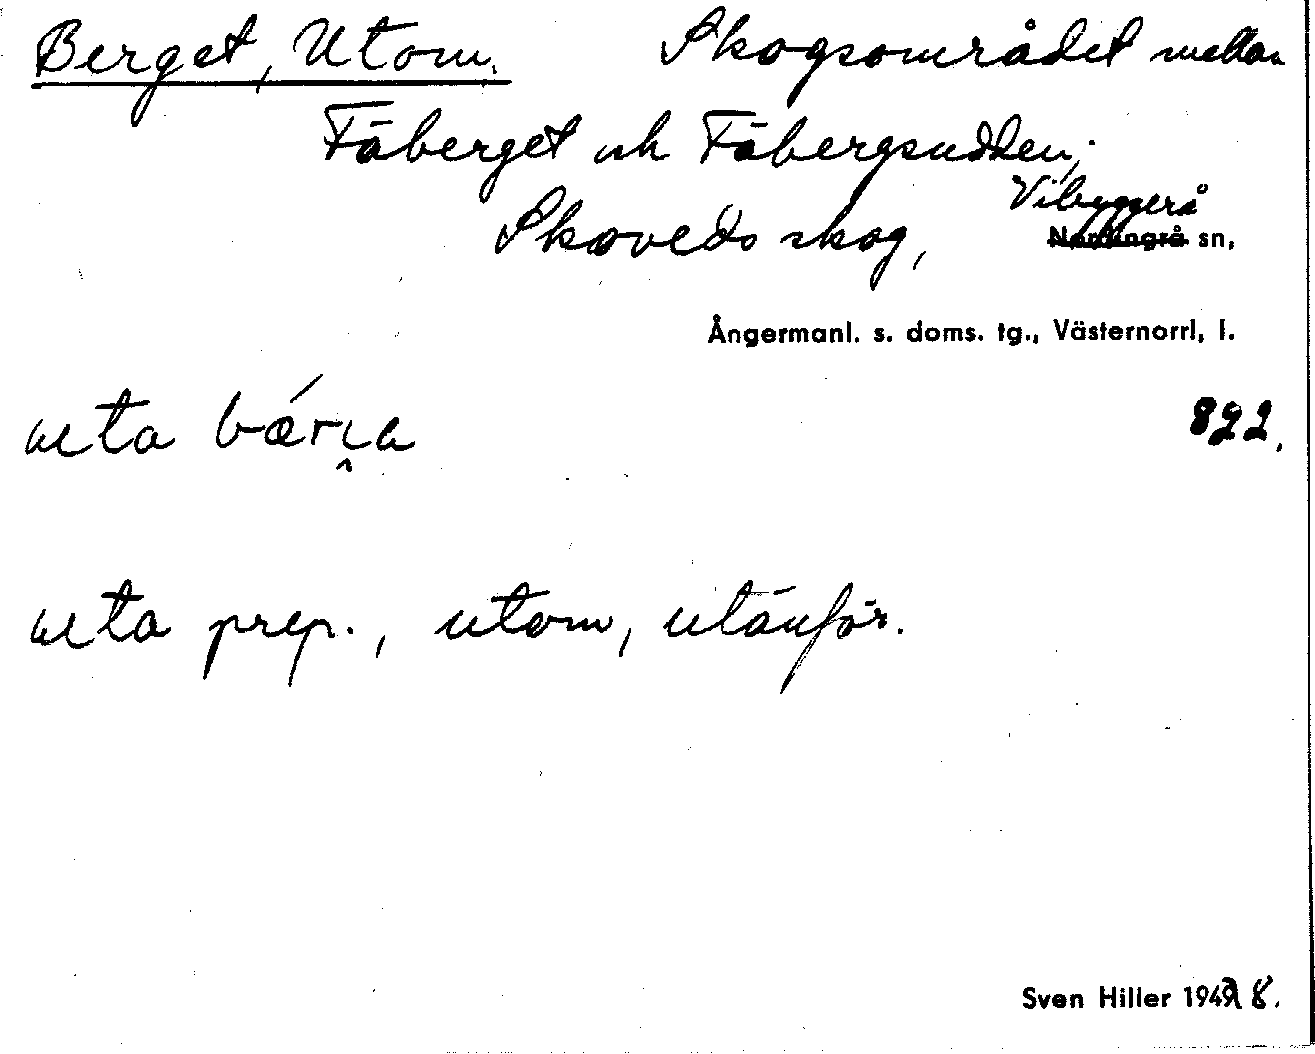 Berget, Utom. Skogsområdet mellan
Fäberget och Fäbergsudden;
Skoveds skog, Vibyggerå
Nordingrå sn,
Ångermanl. s. doms. tg., Västernorrl. l.
uta bærɩa
822.
uta prep., utom, utanför.
Sven Hiller 1948.